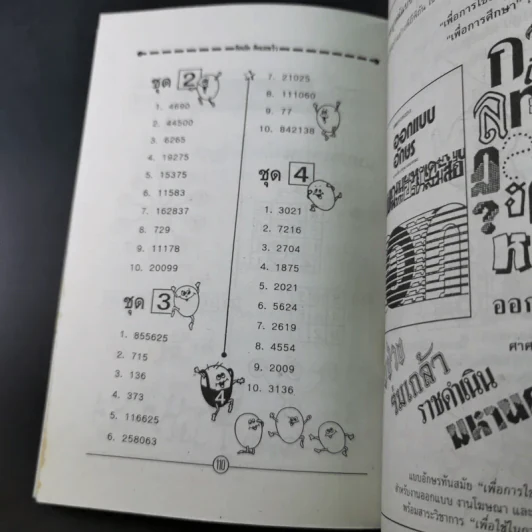 ชุด 2
1. 4680
2. 44500
3. 6265
4. 19275
5. 15375
6. 11583
7. 162837
8. 729
9. 11178
10. 20099
ชุด 3
1. 855625
2. 715
3. 136
4. 373
5. 116625
6. 258063
7. 21025
8. 111060
9. 77
10. 842138
ชุด 4
1. 3021
2. 7216
3. 2704
4. 1875
5. 2021
6. 5624
7. 2619
8. 4554
9. 2009
10. 3136
4
110
"เพื่อการศึกษา"
ออกแบบ
อักษร
ออก
ร่มเกล้า
ราชดำเนิน
มหานค
แบบอักษรทันสมัย "เพื่อการโฆ
สำหรับงานออกแบบ งานโฆษณา และ
พร้อมสาระวิชาการ "เพื่อใช้ในกา